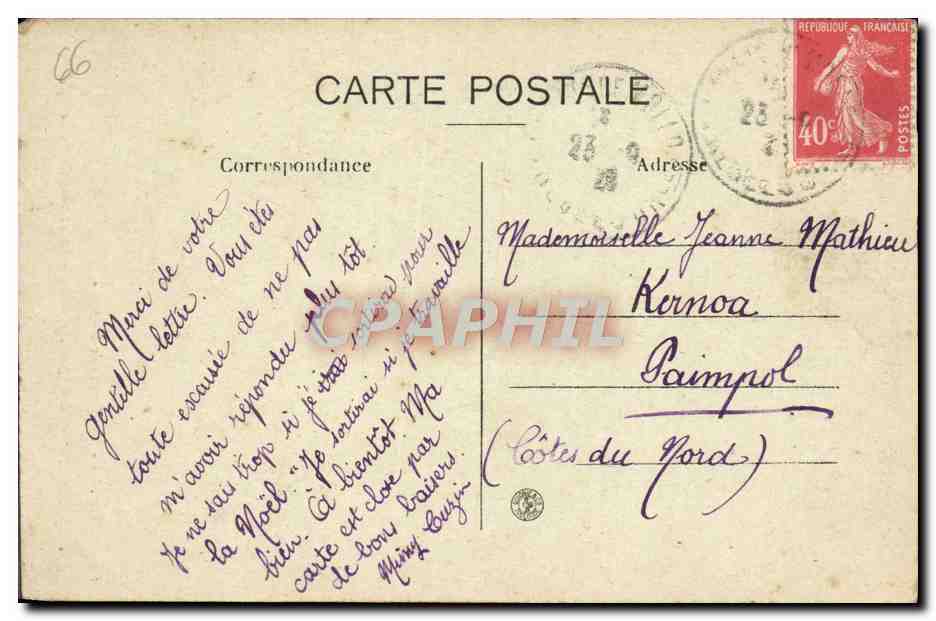 66
CARTE POSTALE
Correspondance
Adresse
REPUBLIQUE FRANCAISE
40c
POSTES
23
23 9
28
Merci de votre
gentille lettre. Vous êtes
toute excusée de ne pas
m'avoir répondu plus tôt.
Je ne sais trop si je sortirai pour
la Noël. "Je sortirai si je travaille
bien. À bientôt. Ma
carte est close par
de bons baisers.
Mimy Cuzin
Mademoiselle Jeanne Mathieu
Kernoa
Paimpol
(Côtes du Nord)
CPAPHIL